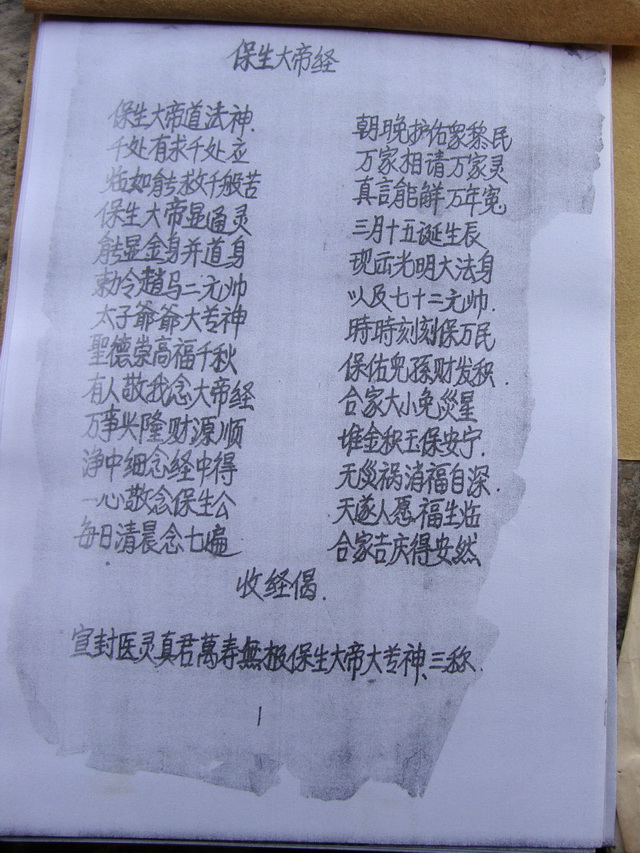 保生大帝经
保生大帝道法神. 朝晚护佑衆黎民
千处有求千处应 万家相请万家灵
临如能救千般苦 真言能解万年冤
保生大帝显通灵 三月十五诞生辰
能显金身并道身 现出光明大法身
勅令趙马二元帅 以及七十二元帅.
太子爺爺大专神 時時刻刻保万民
聖德崇高福千秋 保佑兒孫财发积.
有人敬我念大帝经 合家大小免災星
万事兴隆财源顺 堆金积玉保安宁.
净中细念经中得 无災祸消福自深.
一心敬念保生公 天遂人愿福生临
每日清晨念七遍 合家吉庆得安然
收经偈.
宣封医灵真君萬寿無极保生大帝大专神、三称.
1